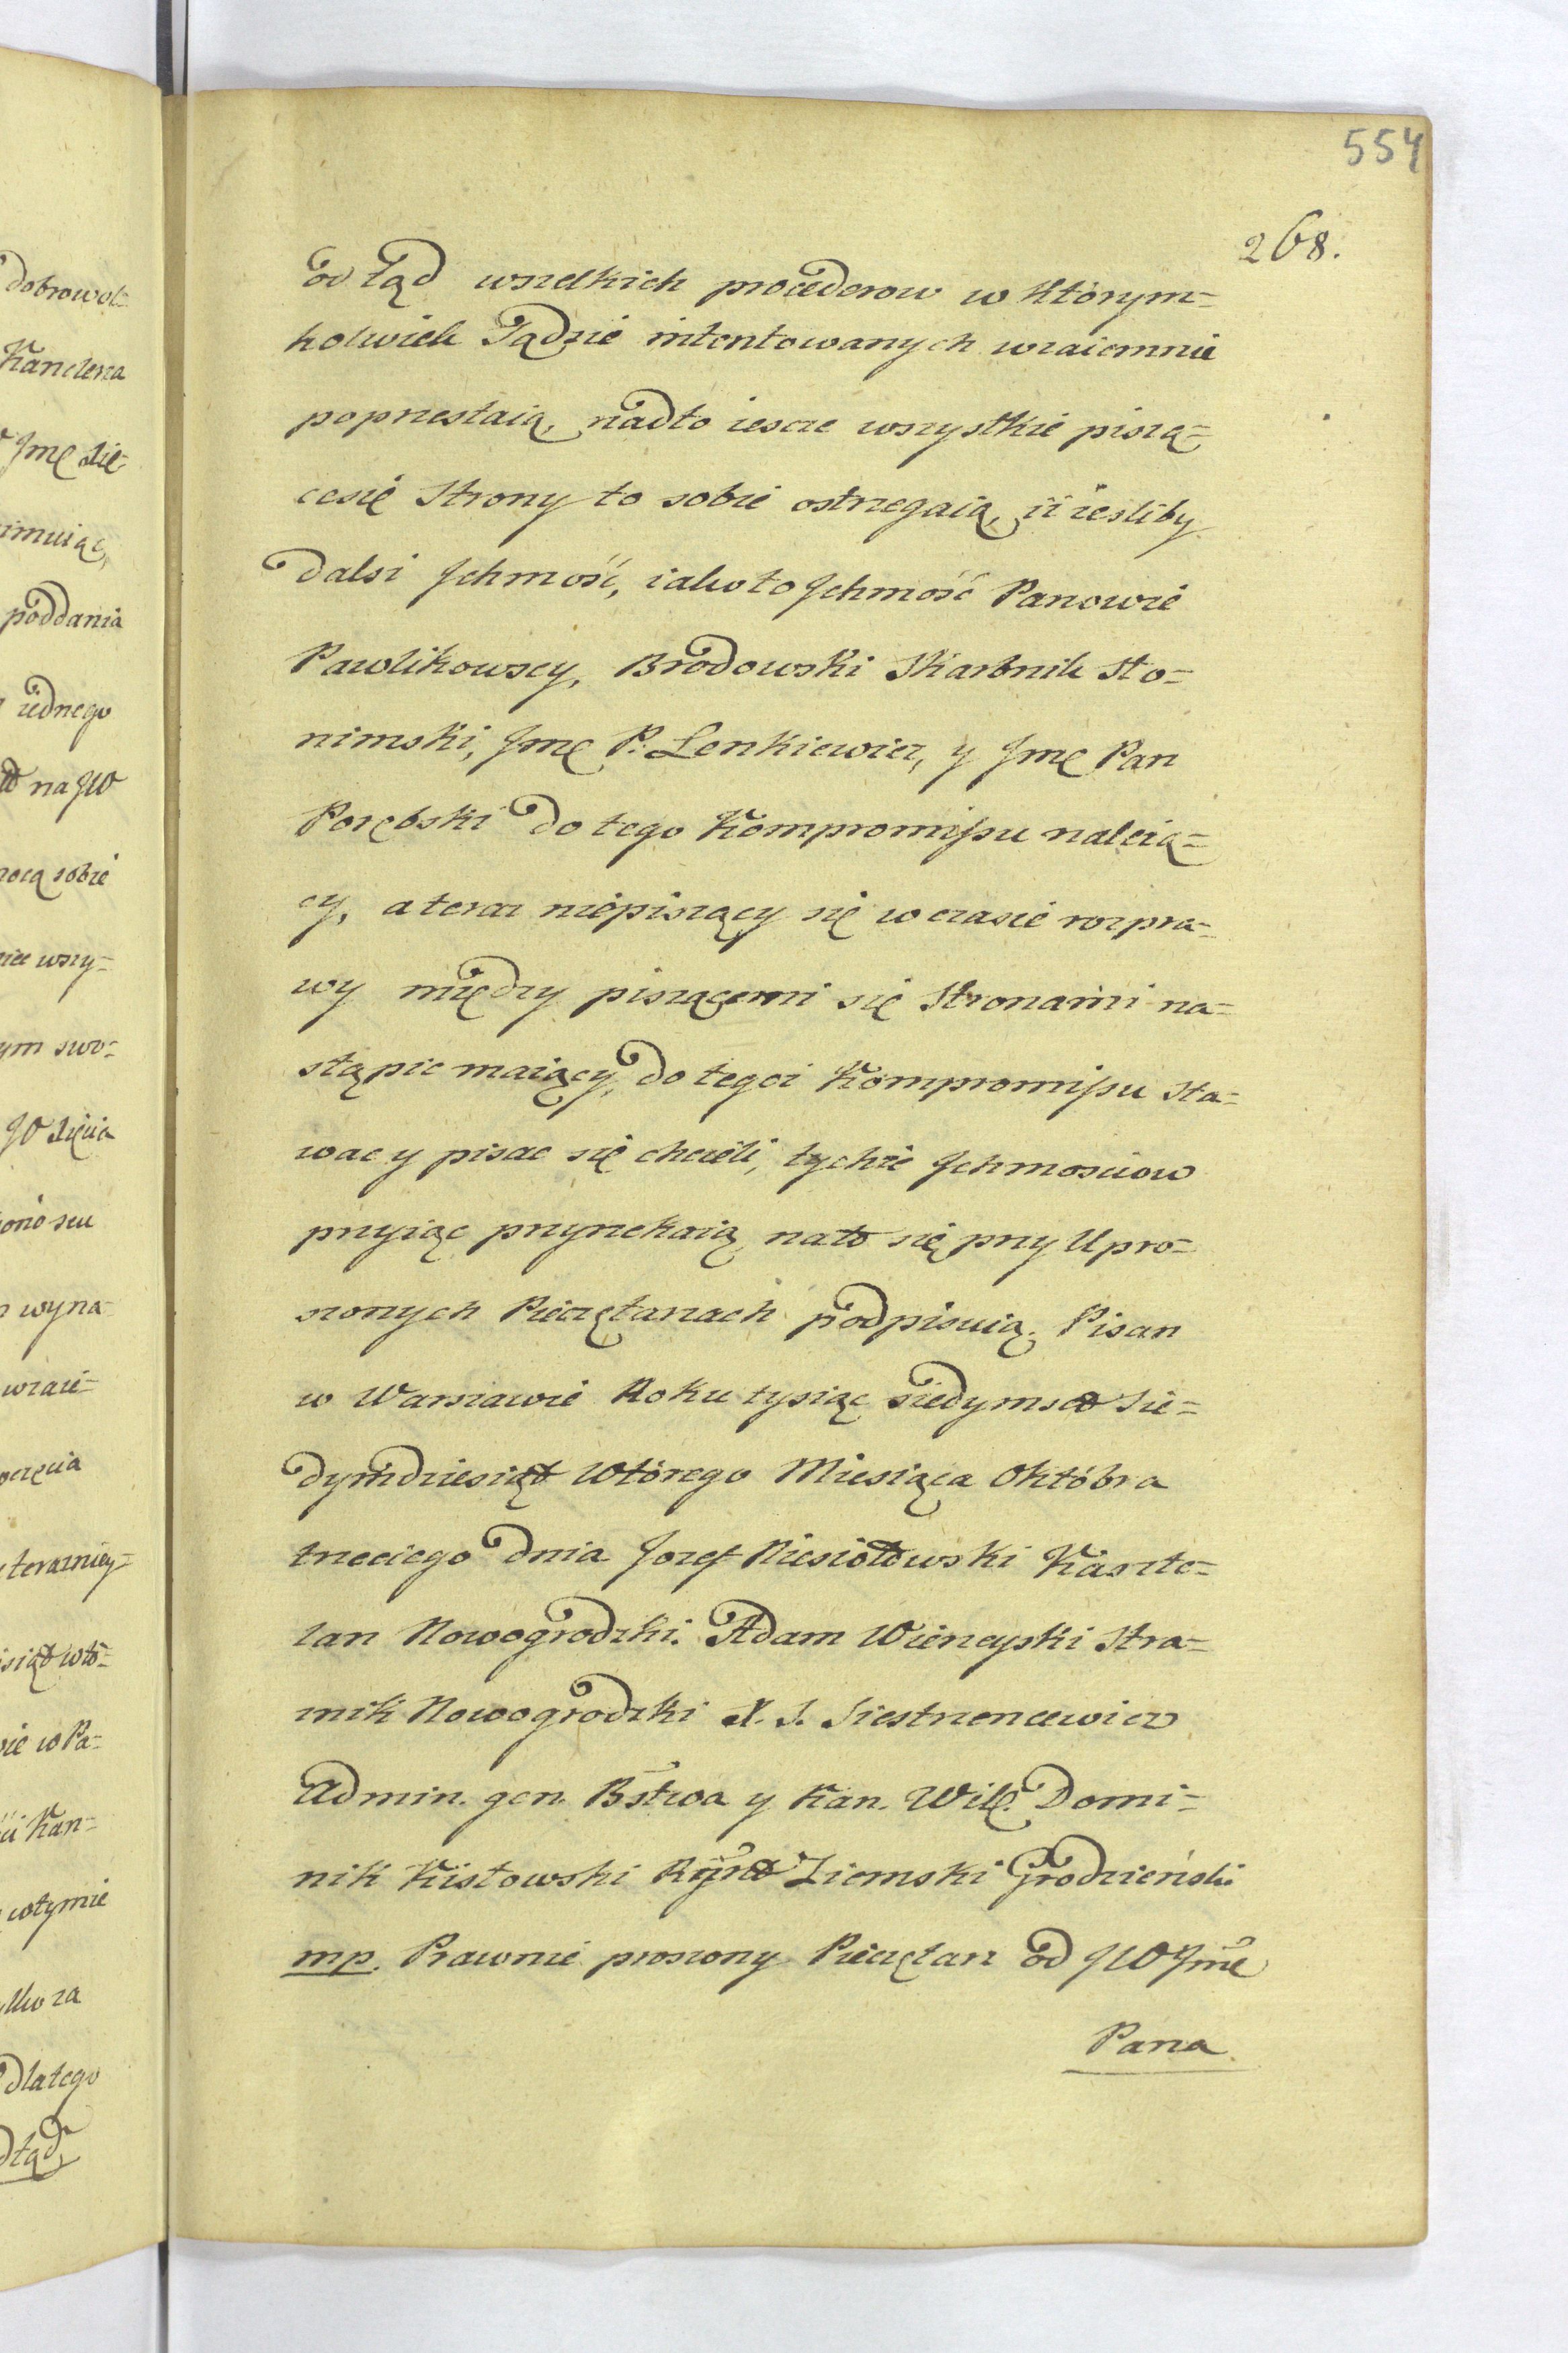 554
268.
odtąd wszelkich procederow w którym=
kolwiek Sądzie intentowanych wzaiemnie
poprzestaią, nadto iescze wszystkie piszą=
cesię Strony to sobie ostrzegaią, iż iesliby
dalsi Jchmość, iakoto Jchmość Panowie
Pawlikowscy, Brodowski Skarbnik Sło=
nimski, Jmę P. Lenkiewicz, y Jmę Pan
Porębski do tego Kompromissu należą=
cy, a teraz niepiszący się w czasie rozpra=
wy między piszącemi się Stronami na=
stąpic maiącey, do tegoż Kompromissu sta=
wac y pisac się chcieli, tychże Jchmosciow
przyiąc przyrzekaią, nato się przy Upro=
szonych Pieczętarzach podpisuią. Pisan
w Warszawie Roku tysiąc siedymset Sie=
dymdziesiąt Wtórego Miesiąca Októbra
trzeciego dnia Jozef Niesiołowski Kaszte=
lan Nowogrodzki. Adam Wierzeyski Stra=
znik Nowogrodzki X. S. Siestrzencewicz
Admin. gen. Bstwa y Kan. Wilę. Domi=
nik Kisłowski Ziemski Grodzieński
mp. Prawnie proszony Pieczętarz od JW Jmć
Pana
dobrowol=
Kanclerza
Jmę
imuiąc,
poddania
iednego
na JW
mocą sobie
wszy=
ym swo=
JW
wyna
wzaie=
terazniey=
siąt wtó=
w Pa=
Kan=
wtymże
lko za
dlatego
odtąd